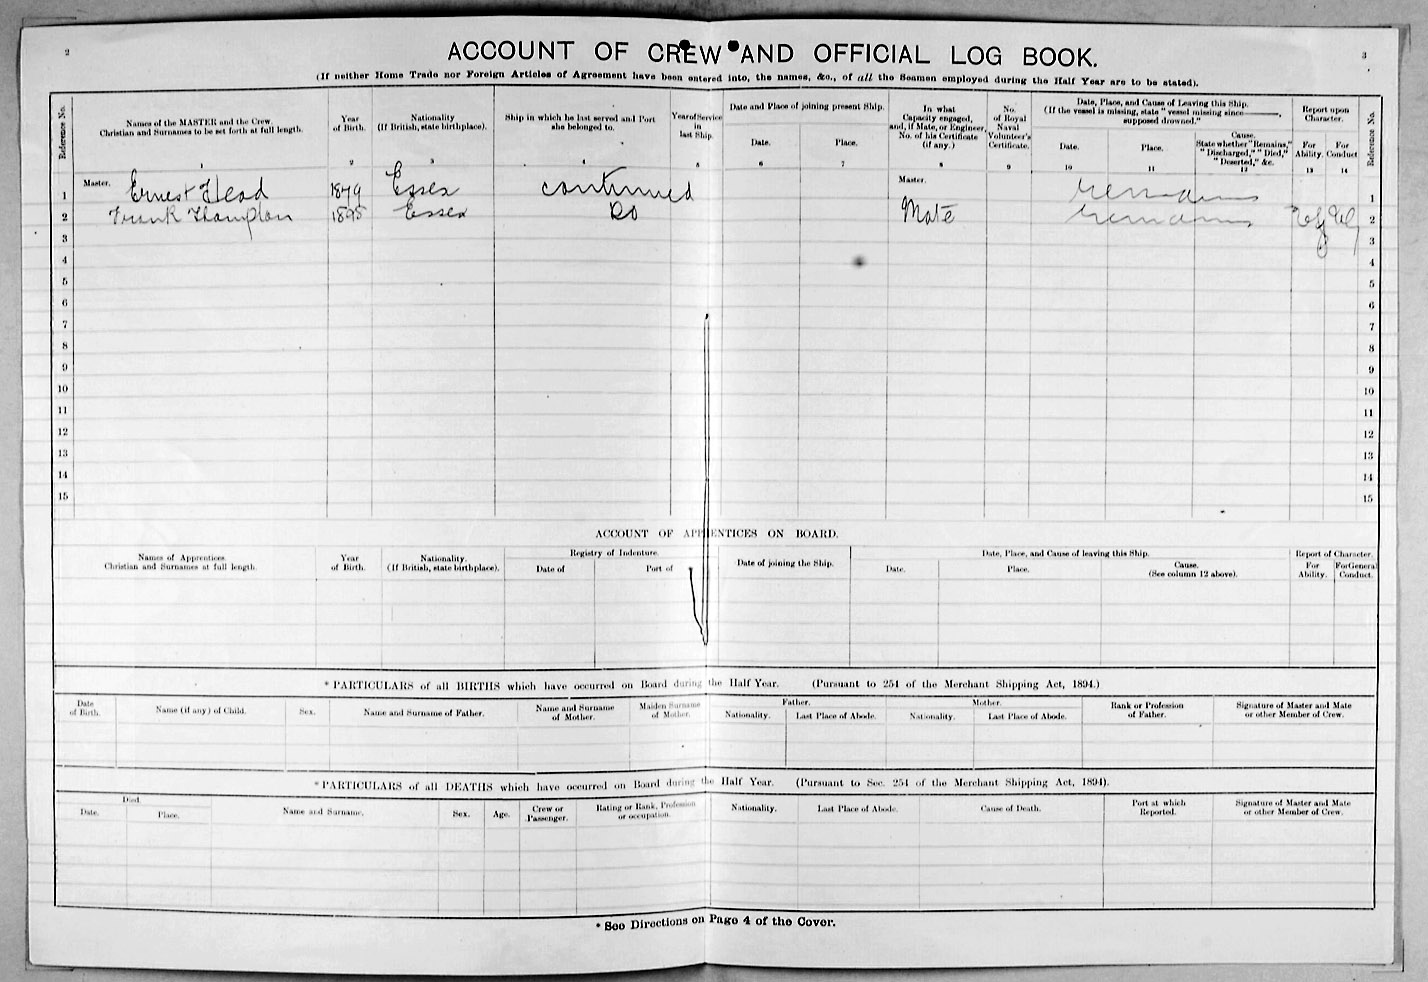 2
3
ACCOUNT OF CREW AND OFFICIAL LOG BOOK.
(If neither Home Trade nor Foreign Articles of Agreement have been entered into, the names, &c., of all the Seamen employed during the Half Year are to be stated).
Reference No.
Names of the MASTER and the Crew.
Christian and Surnames to be set forth at full length.
1
Year
of Birth.
2
Nationality
(If British, state birthplace).
3
Ship in which he last served and Port
she belonged to.
4
Year of Service
in
last Ship.
5
Date and Place of joining present Ship.
Date.
6
Place.
7
In what
Capacity engaged,
and, if Mate, or Engineer,
No. of his Certificate
(if any.)
8
No.
of Royal
Naval
Volunteer's
Certificate.
9
Date, Place, and Cause of Leaving this Ship.
(If the vessel is missing, state "vessel missing since ———,
supposed drowned."
Date.
10
Place.
11
Cause.
State whether "Remains,"
"Discharged," "Died,"
"Deserted," &c.
12
Report upon
Character.
For
Ability.
13
For
Conduct
14
Reference No.
1 Master. Ernest Head 1879 Essex continued Master. remains 1
2 Frank Thompson 1895 Essex Do Mate remains 2
3 3
4 4
5 5
6 6
7 7
8 8
9 9
10 10
11 11
12 12
13 13
14 14
15 15
ACCOUNT OF APPRENTICES ON BOARD.
Names of Apprentices.
Christian and Surnames at full length.
Year
of Birth.
Nationality.
(If British, state birthplace).
Registry of Indenture.
Date of
Port of
Date of joining the Ship.
Date, Place, and Cause of leaving this Ship.
Date.
Place.
Cause.
(See column 12 above).
Report of Character.
For
Ability.
For General
Conduct.
* PARTICULARS of all BIRTHS which have occurred on Board during the Half Year. (Pursuant to 254 of the Merchant Shipping Act, 1894.)
Date
of Birth.
Name (if any) of Child.
Sex.
Name and Surname of Father.
Name and Surname
of Mother.
Maiden Surname
of Mother.
Father.
Nationality.
Last Place of Abode.
Mother.
Nationality.
Last Place of Abode.
Rank or Profession
of Father.
Signature of Master and Mate
or other Member of Crew.
* PARTICULARS of all DEATHS which have occurred on Board during the Half Year. (Pursuant to Sec. 254 of the Merchant Shipping Act, 1894).
Died.
Date.
Place.
Name and Surname.
Sex.
Age.
Crew or
Passenger.
Rating or Rank, Profession
or occupation.
Nationality.
Last Place of Abode.
Cause of Death.
Port at which
Reported.
Signature of Master and Mate
or other Member of Crew.
* See Directions on Page 4 of the Cover.